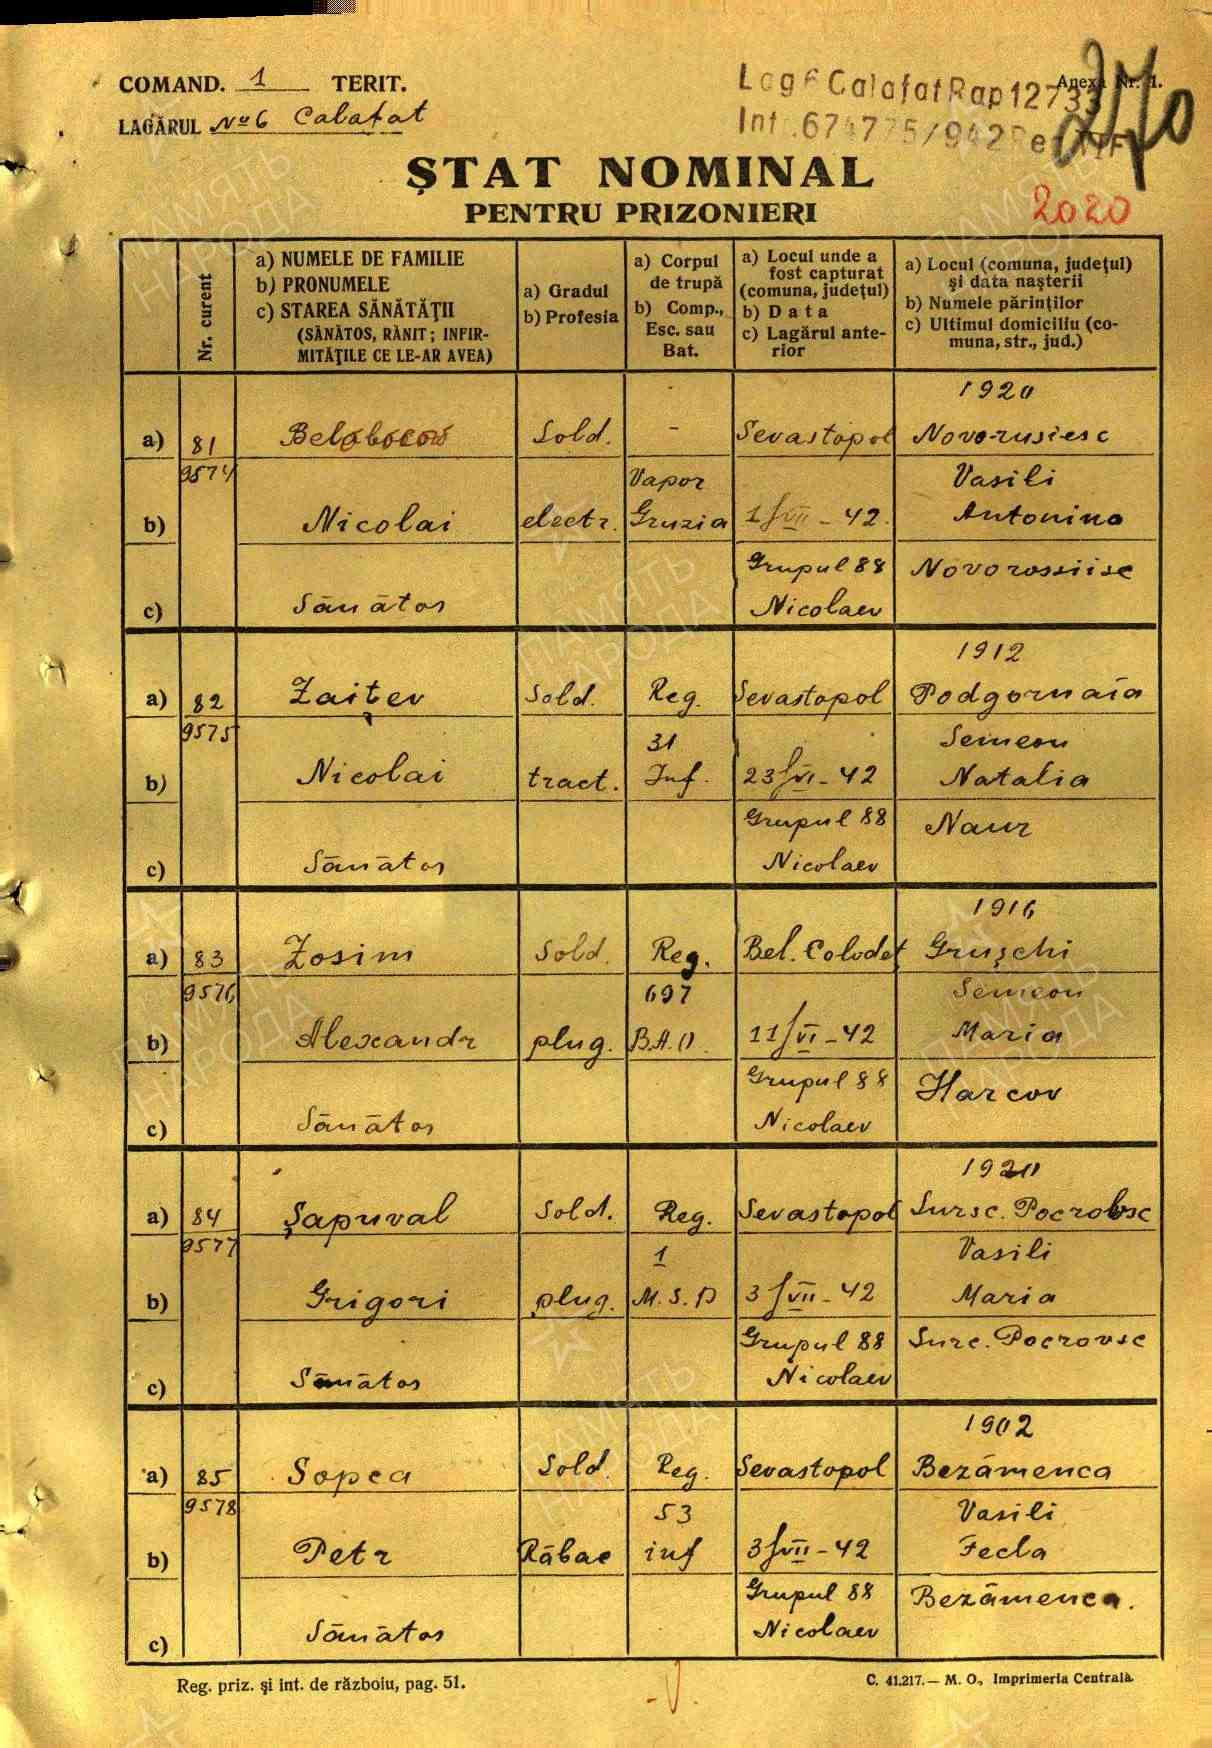 COMAND. 1 TERIT.
LAGĂRUL No 6 Calafat
Lag 6 Calafat Rap 12733
Int.674775/942 Re
Anexa Nr. 1.
2020
ŞTAT NOMINAL
PENTRU PRIZONIERI
Nr. curent
a) NUMELE DE FAMILIE
b) PRONUMELE
c) STAREA SĂNĂTĂŢII
(SĂNĂTOS, RĂNIT; INFIR-
MITĂŢILE CE LE-AR AVEA)
a) Gradul
b) Profesia
a) Corpul
de trupă
b) Comp.,
Esc. sau
Bat.
a) Locul unde a
fost capturat
(comuna, judeţul)
b) Data
c) Lagărul ante-
rior
a) Locul (comuna, judeţul)
şi data naşterii
b) Numele părinţilor
c) Ultimul domiciliu (co-
muna, str., jud.)
1920
a) 81 Sold. - Sevastopol Novo-rusiesc
9574 Vapor Vasili
b) Nicolai electr. Gruzia 1/VII - 42. Antonina
Grupul 88 Novorossiisc
c) Sănătos Nicolaev
1912
a) 82 Zaiţev Sold. Reg. Sevastopol Podgornaia
9575 31 Semeon
b) Nicolai tract. Inf. 23/VI - 42 Natalia
Grupul 88 Naur
c) Sănătos Nicolaev
1916
a) 83 Zosim Sold. Reg. Bel. Colodeţ Gruşchi
9576 697 Semeon
b) Alexandr plug. B.A.O. 11/VI - 42 Maria
Grupul 88 Harcov
c) Sănătos Nicolaev
1920
a) 84 Şapuval Sold. Reg. Sevastopol Sursc. Pocrovsc
9577 1 Vasili
b) Grigori plug. M.S.D 3/VII - 42 Maria
Grupul 88 Surc. Pocrovsc
c) Sănătos Nicolaev
1902
a) 85 Sopca Sold. Reg. Sevastopol Bezămenca
9578 53 Vasili
b) Petr Răbac inf 3/VII - 42 Fecla
Grupul 88 Bezămenca.
c) Sănătos Nicolaev
Reg. priz. şi int. de războiu, pag. 51.
C. 41.217.— M. O., Imprimeria Centrală.
ПАМЯТЬ
НАРОДА